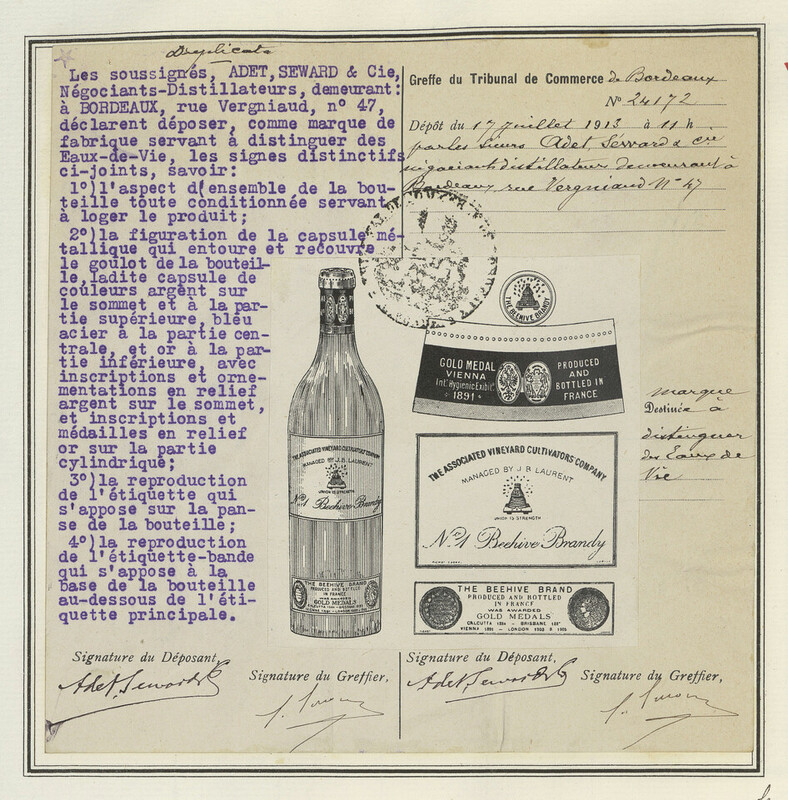 Duplicata
Les soussignés, ADET, SEWARD & Cie,
Négociants-Distillateurs, demeurant:
à BORDEAUX, rue Vergniaud, n° 47,
déclarent déposer, comme marque de
fabrique servant à distinguer des
Eaux-de-Vie, les signes distinctifs
ci-joints, savoir:
1°) l'aspect d'ensemble de la bou-
teille toute conditionnée servant
à loger le produit;
2°) la figuration de la capsule mé-
tallique qui entoure et recouvre
le goulot de la bouteil-
le, ladite capsule de
couleurs argent sur
le sommet et à la par-
tie supérieure, bleu
acier à la partie cen-
trale, et or à la par-
tie inférieure, avec
inscriptions et orne-
mentations en relief
argent sur le sommet,
et inscriptions et
médailles en relief
or sur la partie
cylindrique;
3°) la reproduction
de l'étiquette qui
s'appose sur la pan-
se de la bouteille;
4°) la reproduction
de l'étiquette-bande
qui s'appose à la
base de la bouteille
au-dessous de l'éti-
quette principale.
Greffe du Tribunal de Commerce de Bordeaux
N° 24172
Dépôt du 17 juillet 1913 à 11 h
par les sieurs Adet, Seward & Cie
négociants distillateurs demeurant à
Bordeaux rue Vergniaud N° 47
THE ASSOCIATED VINEYARD CULTIVATORS COMPANY
MANAGED BY J. B. LAURENT
UNION IS STRENGTH
N° 1 Beehive Brandy
THE BEEHIVE BRAND
PRODUCED AND BOTTLED
IN FRANCE
WAS AWARDED
GOLD MEDALS
THE BEEHIVE BRANDY
GOLD MEDAL
VIENNA
Int. Hygienic Exhib.
1891
PRODUCED
AND
BOTTLED IN
FRANCE
THE ASSOCIATED VINEYARD CULTIVATORS COMPANY
MANAGED BY J B LAURENT
UNION IS STRENGTH
N° 1 Beehive Brandy
THE BEEHIVE BRAND
PRODUCED AND BOTTLED
IN FRANCE
WAS AWARDED
GOLD MEDALS
marque
Destinée à
distinguer
des Eaux de
Vie
Signature du Déposant,
Adet Seward & Co
Signature du Greffier,
Signature du Déposant,
Adet Seward & Co
Signature du Greffier,